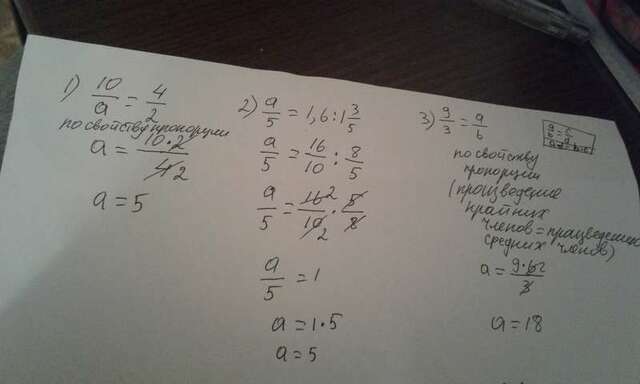 1) 10/a = 4/2
по свойству пропорции
a = 10·2/4 2
a = 5
2) a/5 = 1,6 : 1 3/5
a/5 = 16/10 : 8/5
a/5 = 16 2/10 2 · 5/8
a/5 = 1
a = 1·5
a = 5
3) 9/3 = a/6
по свойству
пропорции
(произведение
крайних
членов = працведение
средних членов)
a = 9·6 2/3
a = 18